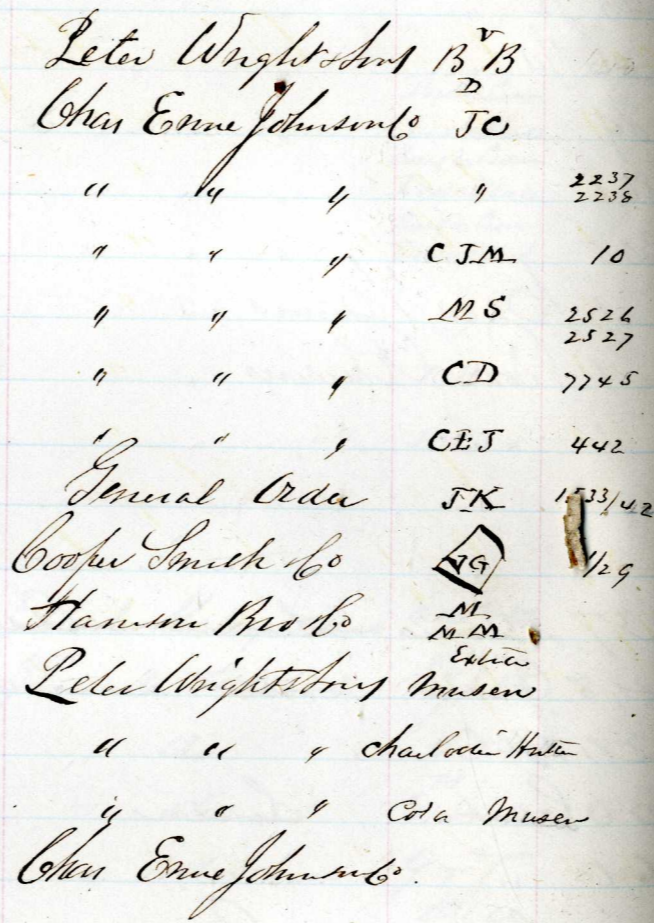 Peter Wright & Sons B V B
D
Chas Enue Johnson & Co J C
" " " " 2237
2238
" " " C J M 10
" " " M S 2526
2527
" " " C D 7745
" " " C E J 442
General Order J K 33/42
Cooper Smith & Co G 1/29
Harrison Bro & Co M
M M
Extra
Peter Wright & Sons Musen
" " " Charlotte
" " " Cora Musen
Chas Enue Johnson & Co.